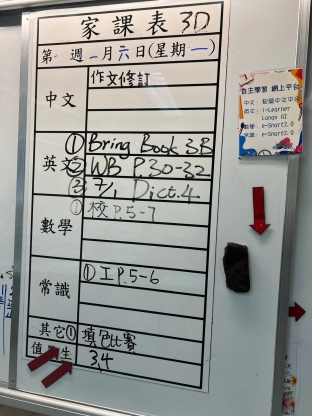 家課表 3D
第 週 一月六日(星期一)
中文
作文修訂
英文
① Bring Book 3B
② WB P.30-32
③ 7/1 Dict.4
數學
① 校 P.5-7
常識
① 工 P.5-6
其它
① 填色比賽
值 生
3,4
自主學習 網上平台
中文:智愛中文平台
英文:i-Learner
Lango AI
數學:e-Smart2.0
常識:e-Smart2.0